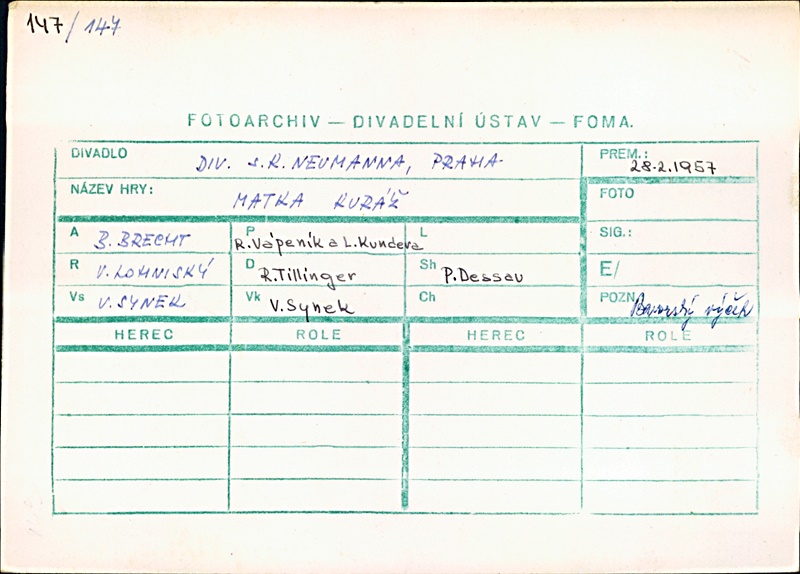 147/147
FOTOARCHIV — DIVADELNÍ ÚSTAV — FOMA.
DIVADLO DIV. S.K. NEUMANNA, PRAHA
PREM.: 28.2.1957
NÁZEV HRY: MATKA KURÁŽ
FOTO
A B. BRECHT P R. Vápeník a L. Kundera L SIG.:
R V. LOHNISKÝ D R. Tillinger Sh P. Dessau E/
Vs V. SYNEK Vk V. Synek Ch POZN.
HEREC ROLE HEREC ROLE